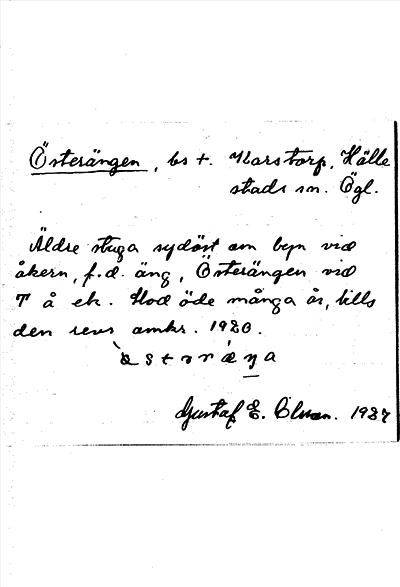 Österängen, bs t. Karstorp, Hälle
stads sn. Ögl.
Äldre stuga sydöst om byn vid
åkern, f.d. äng, Österängen vid
T å ek. Stod öde många år, tills
den revs omkr. 1920.
Gustaf E. Olsson. 1927